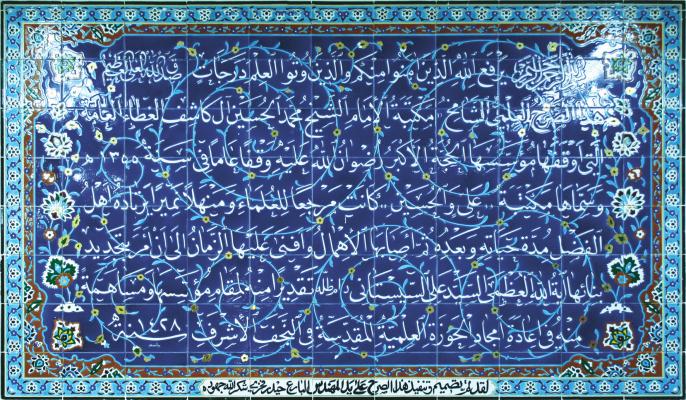 بسم الله الرحمن الرحيم يرفع الله الذين آمنوا منكم والذين أوتوا العلم درجات صدق الله العلي العظيم
هذا الصرح العلمي الشامخ مكتبة الإمام الشيخ محمد الحسين آل كاشف الغطاء العامة
التي وقفها مؤسسها الحجة الأكبر رضوان الله عليه وقفاً عاماً في سنة ١٣٥٥ هـ
وسماها مكتبة علي والحسين كانت مرجعاً للعلماء ومنهلاً نميراً لرواده أهل
الفضل مدة حياته وبعده أصابها الإهمال وأخنى عليها الزمان إلى أن أمر بتجديد
بنائها آية الله العظمى السيد علي السيستاني دام ظله تقديراً منه لمقام مؤسسها ومساهمة
منه في إعادة أمجاد الحوزة العلمية المقدسة في النجف الأشرف سنة ١٤٢٨
لقد تم تصميم وتنفيذ هذا الصرح على يد المهندس البارع شكر الله